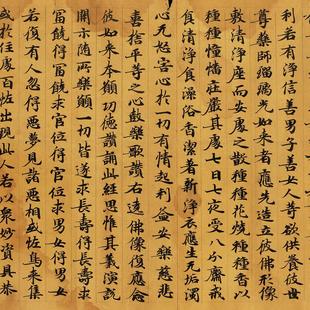 利若有淨信善男子善女人等欲供養彼世
尊藥師瑠璃光如來者應先造立彼佛形像
敷清淨座而安處之散種種花燒種種香以
種種幢幡莊嚴其處七日七夜受八分齋戒
食清淨食澡浴香潔著新淨衣應生无垢濁
心无怒害心於一切有情起利益安樂慈悲
喜捨平等之心鼓樂歌讚右遶佛像復應念
彼如來本願功德讀誦此經思惟其義演說
開示隨所樂願一切皆遂求長壽得長壽求
富饒得富饒求官位得官位求男女得男女
若復有人忽得惡夢見諸惡相或恠鳥來集
或於住處百恠出現此人若以衆妙資具恭